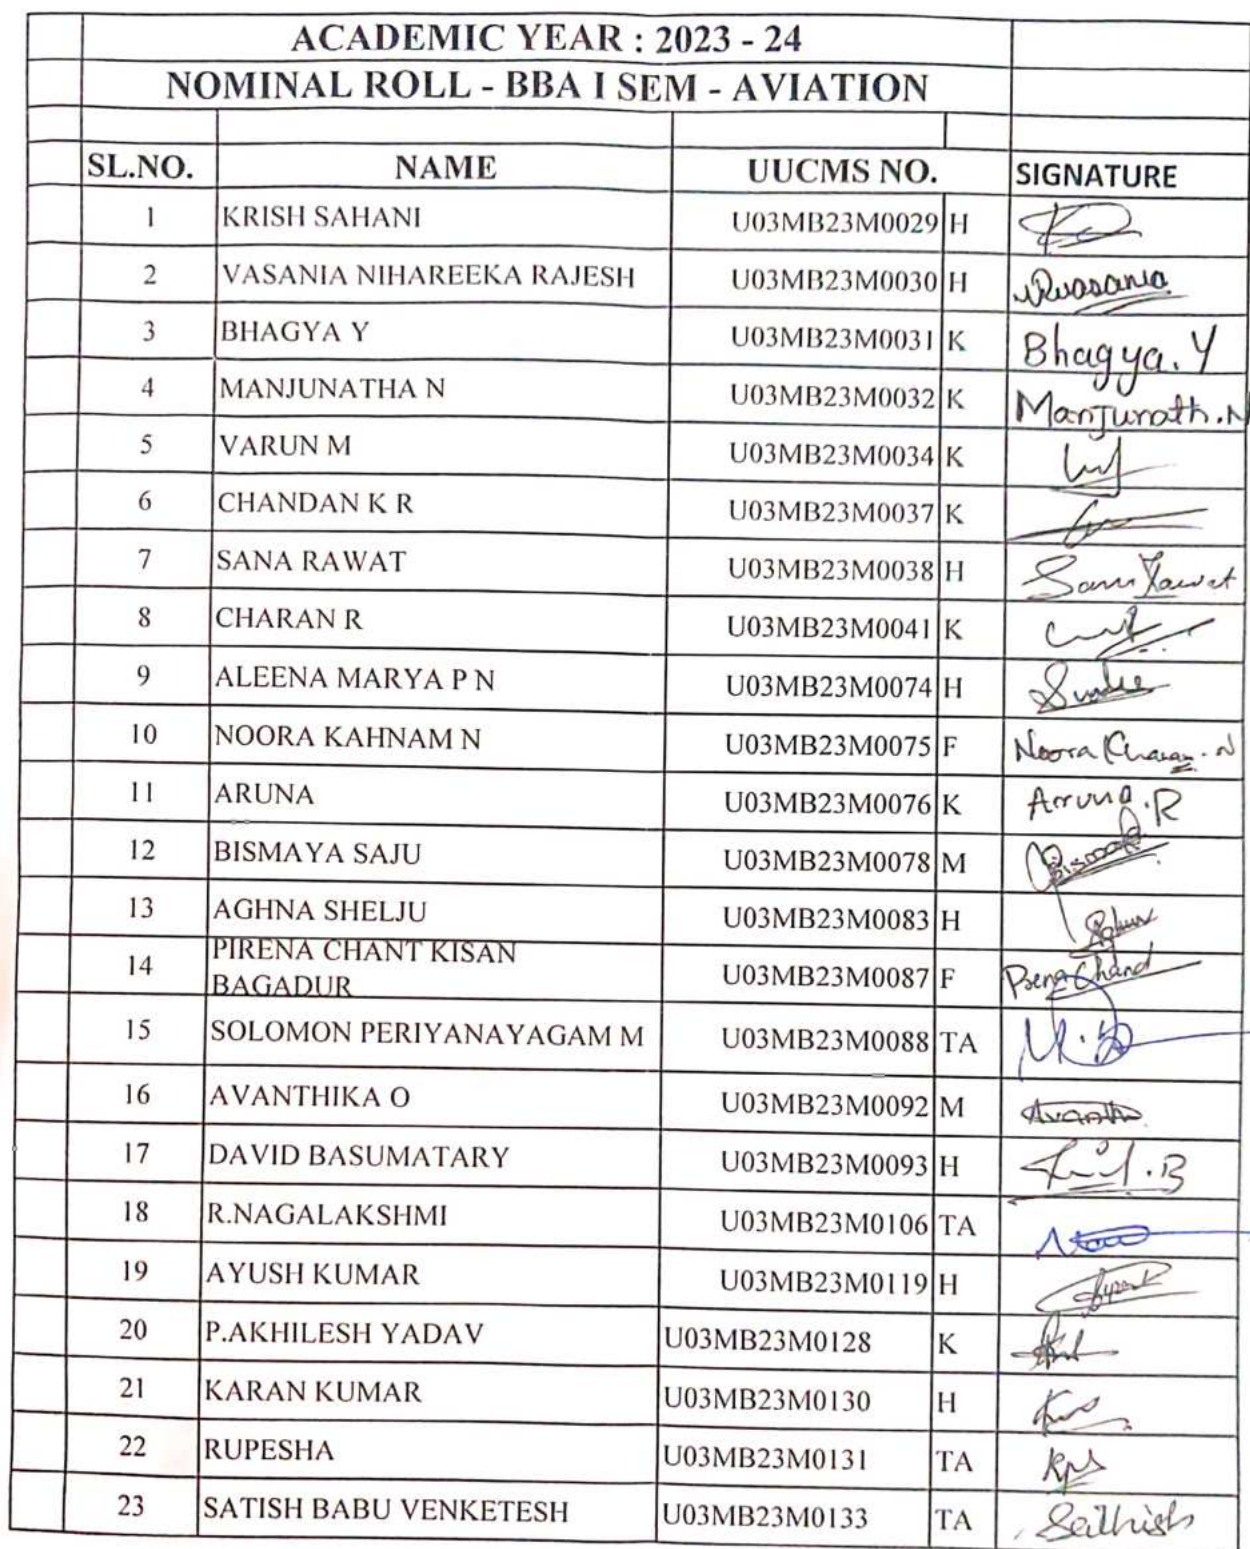 ACADEMIC YEAR : 2023 - 24
NOMINAL ROLL - BBA I SEM - AVIATION
SL.NO. NAME UUCMS NO. SIGNATURE
1 KRISH SAHANI U03MB23M0029 H
2 VASANIA NIHAREEKA RAJESH U03MB23M0030 H
3 BHAGYA Y U03MB23M0031 K Bhagya.Y
4 MANJUNATHA N U03MB23M0032 K Manjunath.N
5 VARUN M U03MB23M0034 K
6 CHANDAN K R U03MB23M0037 K
7 SANA RAWAT U03MB23M0038 H Sana Rawat
8 CHARAN R U03MB23M0041 K
9 ALEENA MARYA P N U03MB23M0074 H
10 NOORA KAHNAM N U03MB23M0075 F Noora
11 ARUNA U03MB23M0076 K Arruna.R
12 BISMAYA SAJU U03MB23M0078 M
13 AGHNA SHELJU U03MB23M0083 H
14 PIRENA CHANT KISAN
BAGADUR U03MB23M0087 F
15 SOLOMON PERIYANAYAGAM M U03MB23M0088 TA
16 AVANTHIKA O U03MB23M0092 M
17 DAVID BASUMATARY U03MB23M0093 H
18 R.NAGALAKSHMI U03MB23M0106 TA
19 AYUSH KUMAR U03MB23M0119 H
20 P.AKHILESH YADAV U03MB23M0128 K
21 KARAN KUMAR U03MB23M0130 H
22 RUPESHA U03MB23M0131 TA
23 SATISH BABU VENKETESH U03MB23M0133 TA Sathish